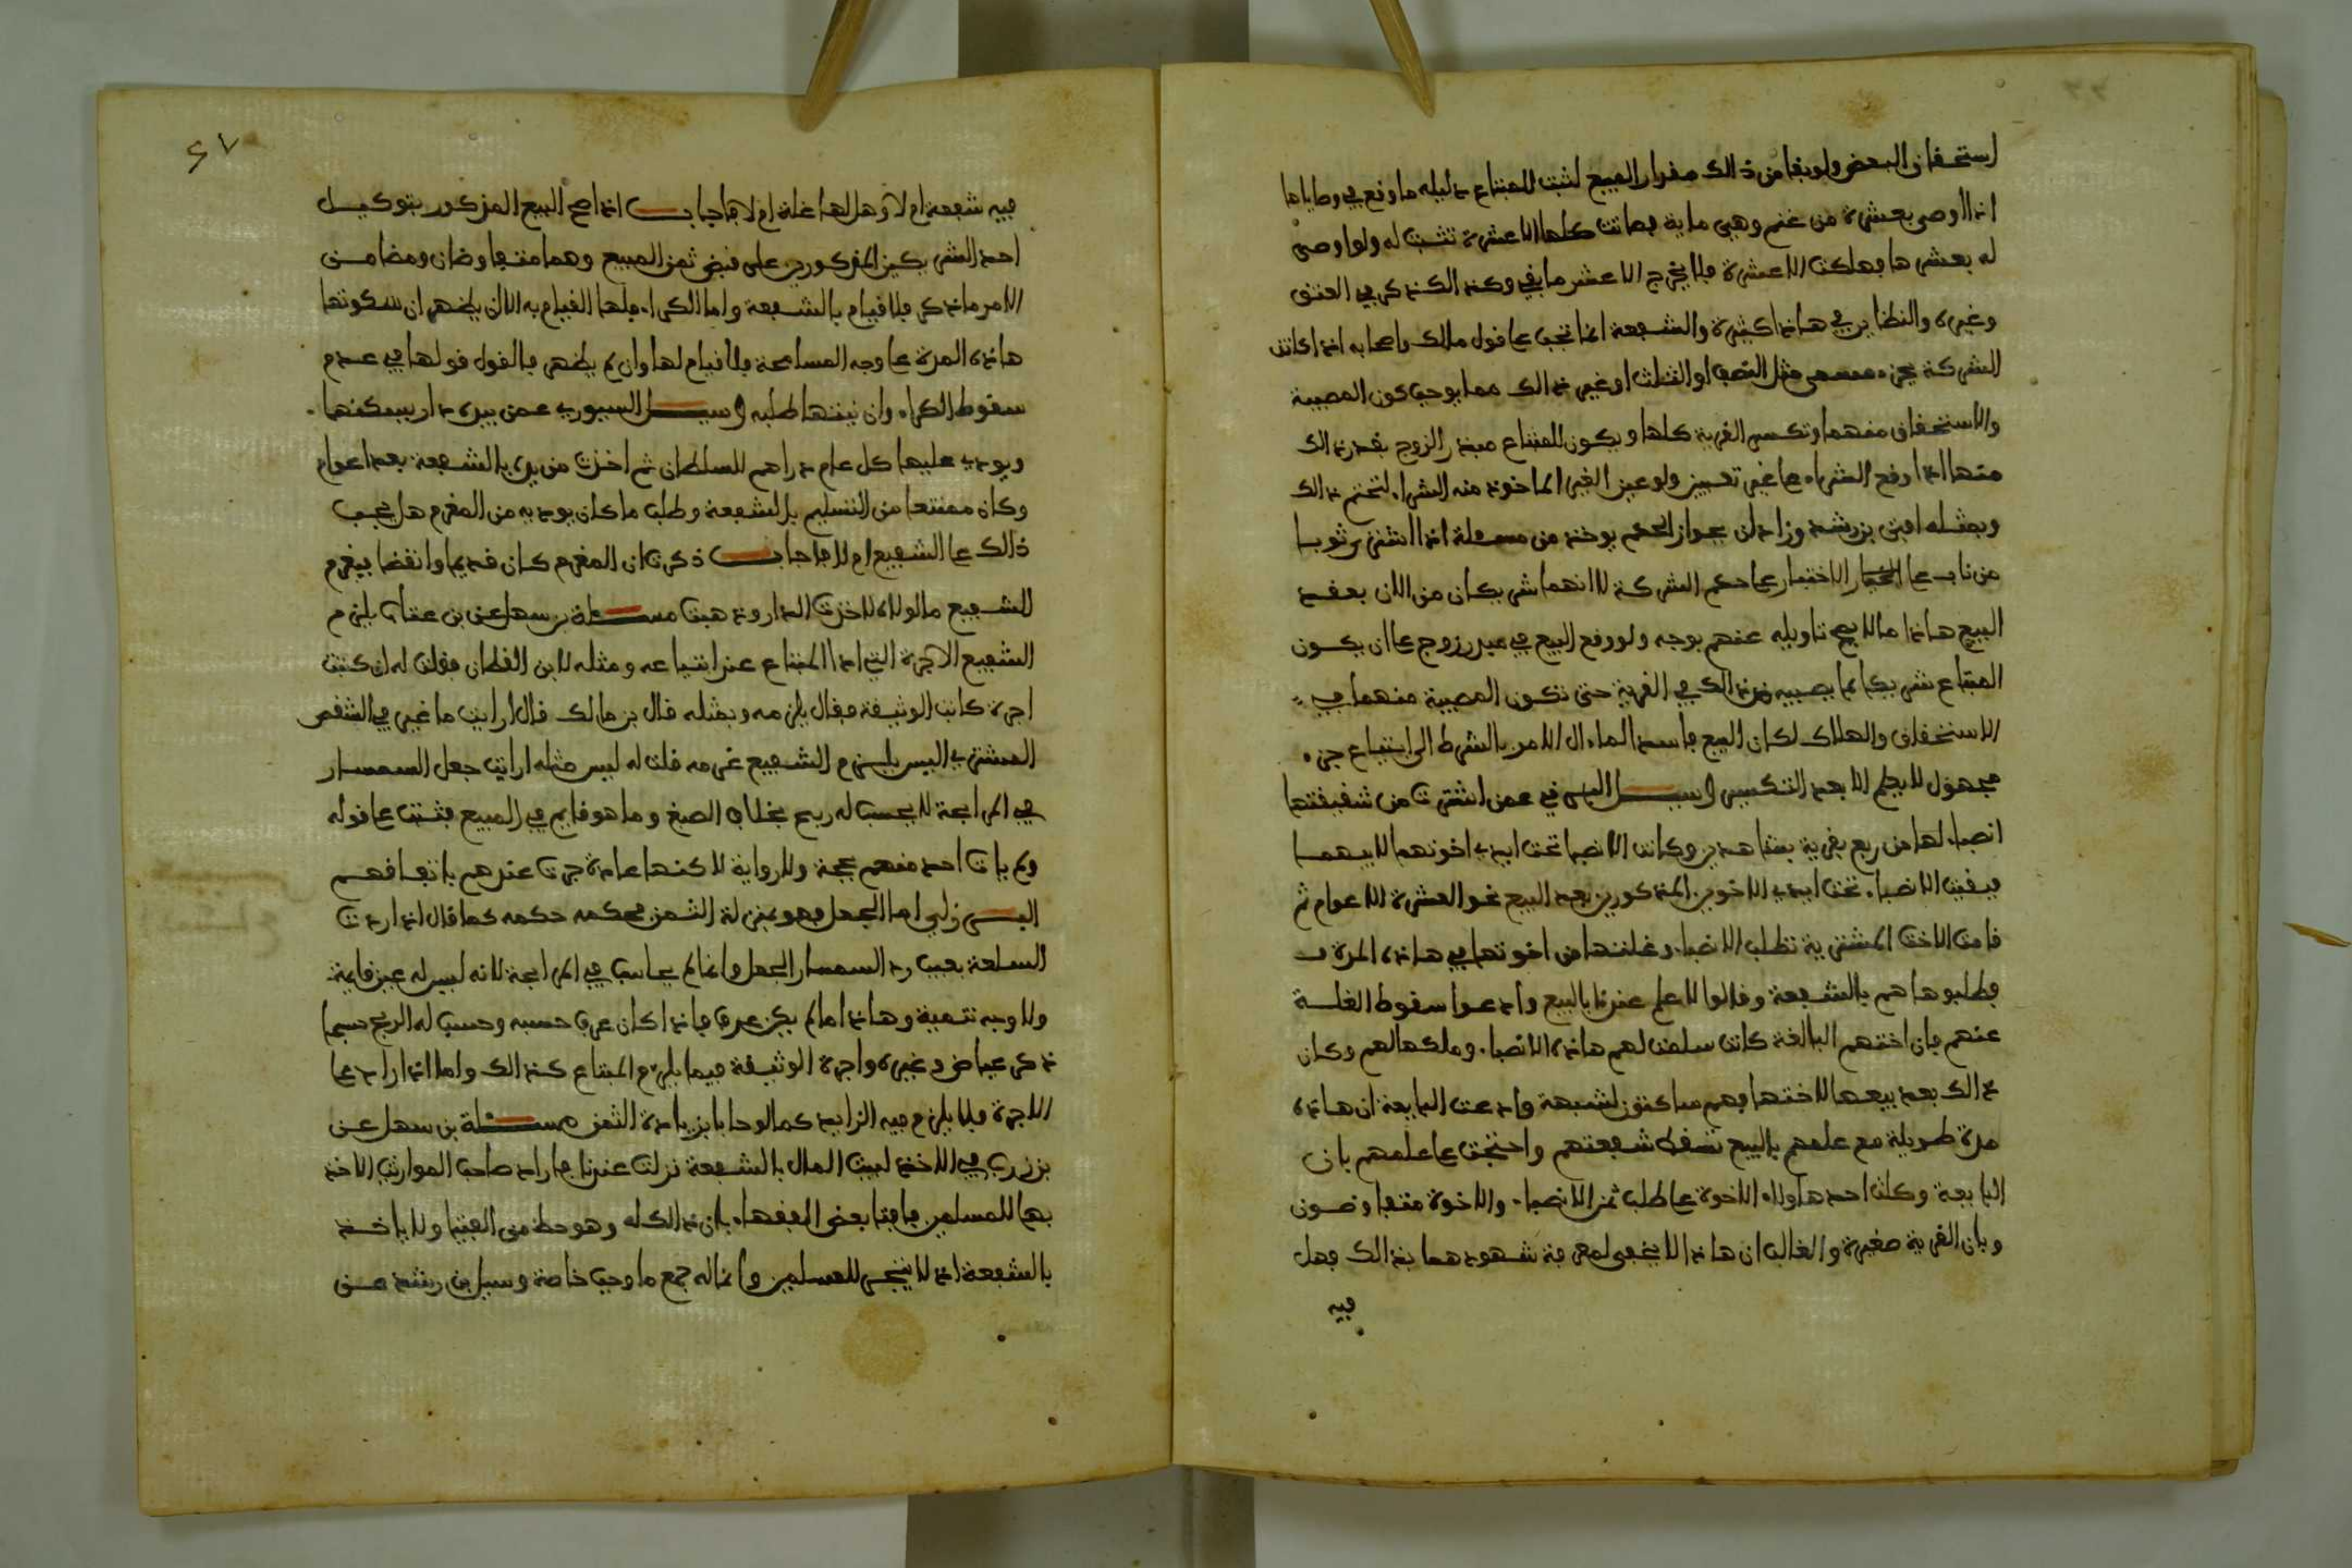 استحقاق البعض ولو بقا من ذالك مقدار المبيع لثبت للمبتاع دليله ما وقع في وصاياها
اذا اوصى بعشرة من غنم وهي ماية فماتت كلها الا عشرة تثبت له ولو اوصى
له بعشرها فهلكت الا عشرة فلا يخرج الا عشر ما بقي وكذالك ذكر في العتق
وغيره والنظاير في هاذا كثيرة والشفعة انما تجب على قول مالك واصحابه اذا كانت
الشركة بجزء مثل النصف او الثلث او غير ذالك مما يوجب كون المصيبة
والاستحقاق منهما وتكسر القرية كلها ويكون للمبتاع الزوج بقدر ذالك
منها اذا وقع الشراء على غير تعيين ولو عين القير الماخوذ منه الشراء لتحتم ذالك
وبمثله افتى بن رشد وزاد ان بجواز الحكم يوخذ من مسئلة اذا اشترى ثوبا
من ثياب على الاختيار على حكم الشركة لا انهما شريكان من الان بعقد
البيع هاذا ما لا يصح تاويله عنهم بوجه ولو وقع البيع في زوج على ان يكون
المبتاع شريكا بما يصيبه ذالك في القرية حتى تكون المصيبة منهما في
الاستحقاق والهلاك لكان البيع فاسدا لمئال الامر بالشرط الى ابتياع جزء
مجهول لا يعلم الا بعد التكسير وسئل عمن اشترت من شقيقتها
انصباء لها من ربع بقرية وكانت الانصبا تحت ايدي اخوتهما لابيهما
فبقيت الانصباء تحت ايدي الاخوين المذكورين بعد البيع نحو العشرة الاعوام ثم
قامت الاخت المشترية تطلب الانصباء وغلتها من اخوتها في هاذه المدة
فطلبوها هم بالشفعة وقالوا لا علم عندنا بالبيع وادعوا سقوط الغلة
عنهم فان اختهم البالغة كانت سلمت لهم هاذه الانصباء وملكها لهم وكان
ذالك بعد بيعها لاختها فهم ساكنون لشبهة وادعت البايعة ان هاذه
مدة طويلة مع علمهم بالبيع تسقط شفعتهم واحتجت على علمهم بان
البايعة وكلت احد هاولاء الاخوة على طلب ثمن الانصباء والاخوة متفاوضون
وبان القرية صغيرة والغالب ان هاذا لا يخفى لمعرفة شهودهما بذالك فهل
فيه
٤٧
فيه شفعة ام لا وهل لها غلة ام لا فاجاب اذا صح البيع المذكور بتوكيل
احد الشريكين المذكورين على قبض ثمن المبيع وهما متفاوضان ومضا من
الامر ما ذكر فلا قيام بالشفعة واما الكراء فلها القيام به الا ان يظهر ان سكوتها
هاذه المدة على وجه المسامحة فلا قيام لها وان لم يظهر فالقول قولها في عدم
سقوط الكراء وان نيتها طلبه وسئل السيوري عمن بيده دار يسكنها
ويودي عليها كل عام دراهم للسلطان ثم اخذت من يده بالشفعة بعد اعوام
وكان ممتنعا من التسليم بالشفعة وطلب ما كان يوديه من المغرم هل يجب
ذالك على الشفيع ام لا فاجاب ذكرت ان المغرم كان قديما وانقضا فيغرم
الشفيع ما لولاه لاخذت الدار وذهبت مسئلة بن سهل عن بن عتاب يلزم
الشفيع الاجرة التي ادا المبتاع عند ابتياعه ومثله لابن القطان فقلت له ان كنت
اجرة كاتب الوثيقة فقال يلزمه وبمثله قال بن مالك قال ارايت ما غير في الشقص
المشتري اليس يلزم الشفيع غرمه قلت له ليس مثله ارايت جعل السمسار
في المرابحة لا يحسب له ربح بخلاف الصبغ وما هو قايم في المبيع فثبت على قوله
ولم يات احد منهم بحجة ولا رواية لاكنها عادة جرت عندهم باتفاقهم
البرزلي اما الجعل فهو بمنزلة الثمن فحكمه حكمه كما قال اذا ردت
السلعة بعيب رد السمسار الجعل وانما لم يحاسب في المرابحة لانه ليس له عين قايمة
ولا وجه تنمية وهاذا ما لم يكن عرف فاذا كان عرف حسبه وحسب له الربح حسبما
ذكر عياض وغيره واجرة الوثيقة فيما يلزم المبتاع كذالك واما اذا زاد على
الاجرة فلا يلزم فيه الزايد كما لو حابا بزيادة الثمن مسئلة بن سهل عن
بن زرب في الاخذ لبيت المال بالشفعة نزلت عندنا فاراد صاحب المواريث الاخذ
بها للمسلمين فافتا بعض الفقهاء بان ذالك له وهو خطا من الفتيا ولا ياخذ
بالشفعة اذ لا يتجر للمسلمين وانما له جمع ما وجب خاصة وسئل بن رشد عن